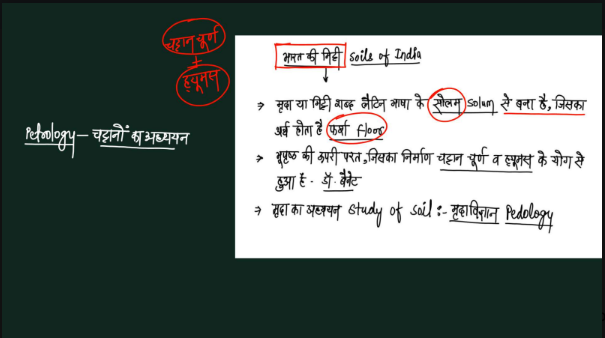 चट्टान चूर्ण
+
ह्यूमस
Pedology – चट्टानों का अध्ययन
भारत की मिट्टी Soils of India
→ मृदा या मिट्टी शब्द लैटिन भाषा के सोलम Solum से बना है, जिसका
अर्थ होता है फर्श Floor
→ भूपृष्ठ की ऊपरी परत, जिसका निर्माण चट्टान चूर्ण व ह्यूमस के योग से
हुआ है - डॉ. बैनेट
→ मृदा का अध्ययन Study of Soil :- मृदा विज्ञान Pedology